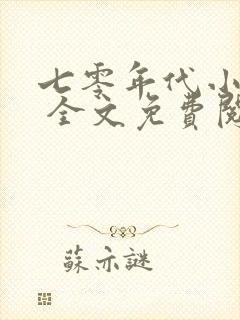 七零年代小
全文免費閱
蘇亦謎